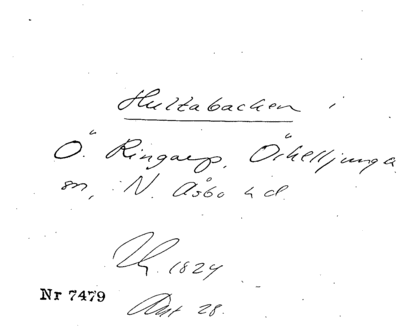 Hultabacken i
Ö. Ringarp, Örkelljunga
sn, N. Åsbo hd.
1824
Nr 7479
Ant 28.